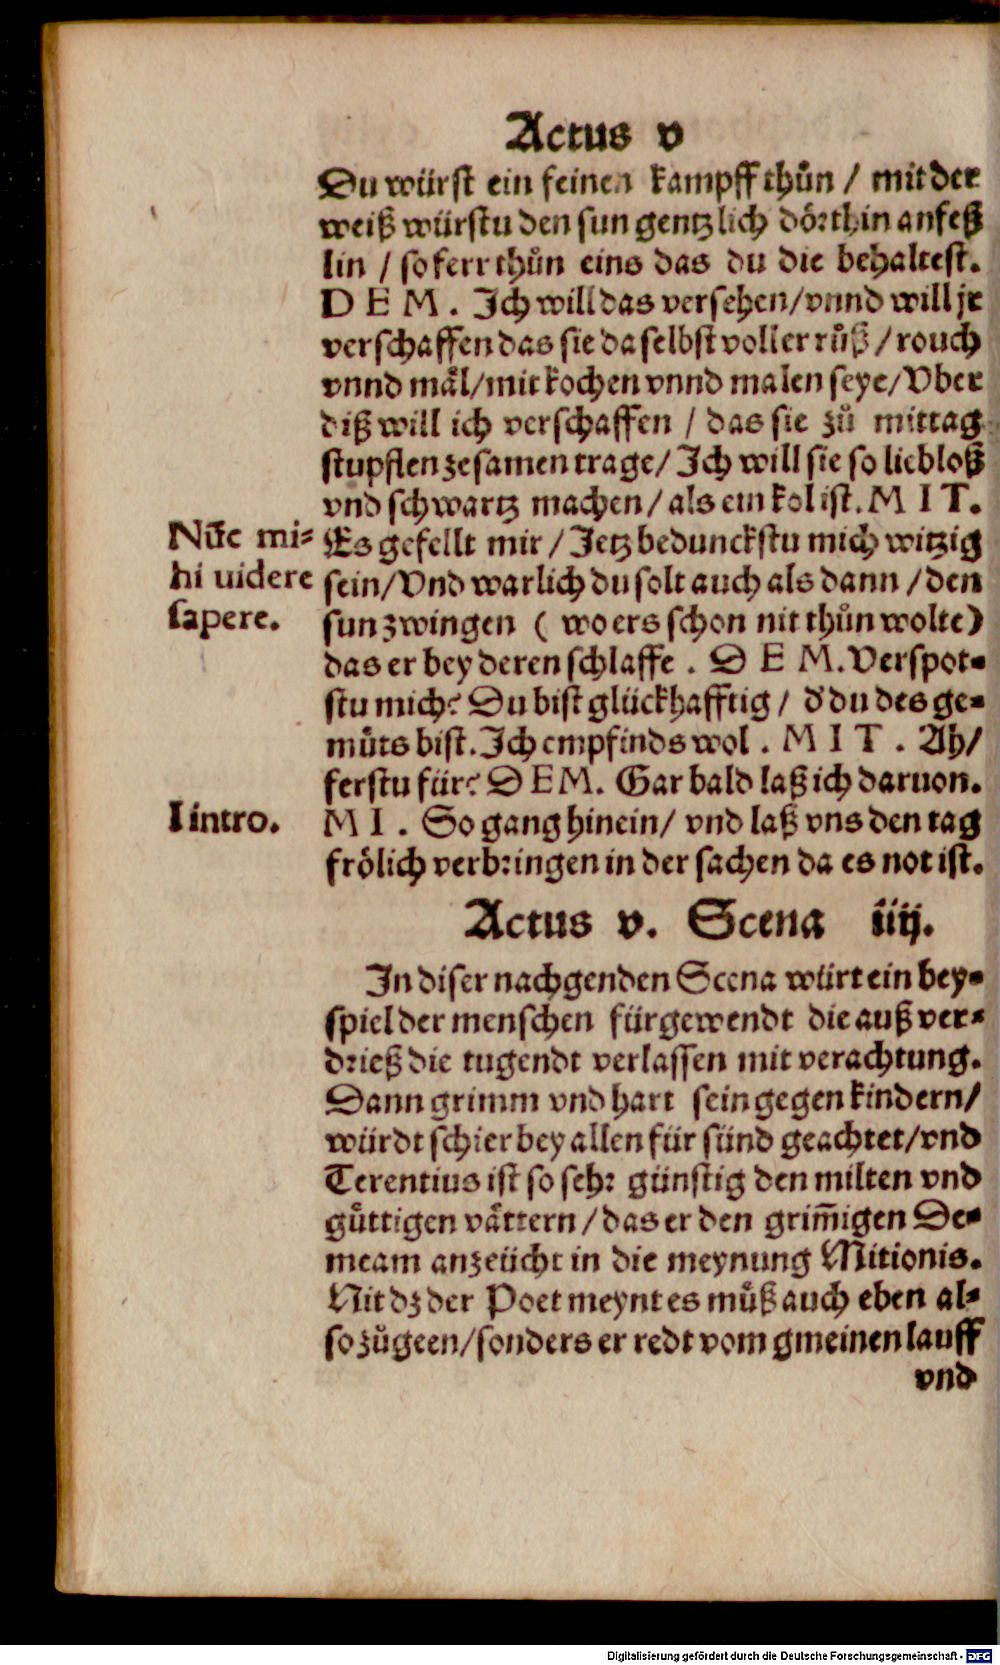 Actus v
Du würst ein feinen kampff thůn / mit der
weiß würstu den sun gentzlich dörthin anfeß
lin / so ferr thůn eins das du die behaltest.
D E M . Ich will das versehen/vnnd will je
verschaffen das sie daselbst voller růß / rouch
vnnd mäl/mit kochen vnnd malen seye/Vber
diß will ich verschaffen / das sie zů mittag
stupflen zesamen trage/ Ich will sie so liebloß
vnd schwartz machen/ als ein kol ist. M I T.
Nūc mi-
hi uidere
sapere.
Es gefellt mir / Jetz bedunckstu mich witzig
sein/Vnd warlich du solt auch als dann / den
sun zwingen ( wo ers schon nit thůn wolte)
das er bey deren schlaffe . D E M. Verspot-
stu mich? Du bist glückhafftig / d' du des ge-
můts bist. Ich empfinds wol . M I T . Ah/
ferstu für? D E M. Gar bald laß ich daruon.
I intro.
M I . So gang hinein/ vnd laß vns den tag
frölich verbringen in der sachen da es not ist.
Actus v. Scena iiij.
In diser nachgenden Scena würt ein bey-
spiel der menschen fürgewendt die auß ver-
drieß die tugendt verlassen mit verachtung.
Dann grimm vnd hart sein gegen kindern/
würdt schier bey allen für sünd geachtet/vnd
Terentius ist so sehr günstig den milten vnd
gůttigen vättern / das er den grim̄igen De-
meam anzeücht in die meynung Mitionis.
Nit dz der Poet meynt es můß auch eben al-
so zůgeen/sonders er redt vom gmeinen lauff
vnd
Digitalisierung gefördert durch die Deutsche Forschungsgemeinschaft - DFG